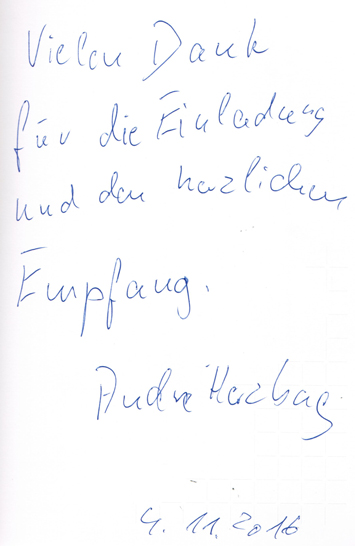 Vielen Dank
für die Einladung
und den herzlichen
Empfang.
André Herzberg
4. 11. 2016